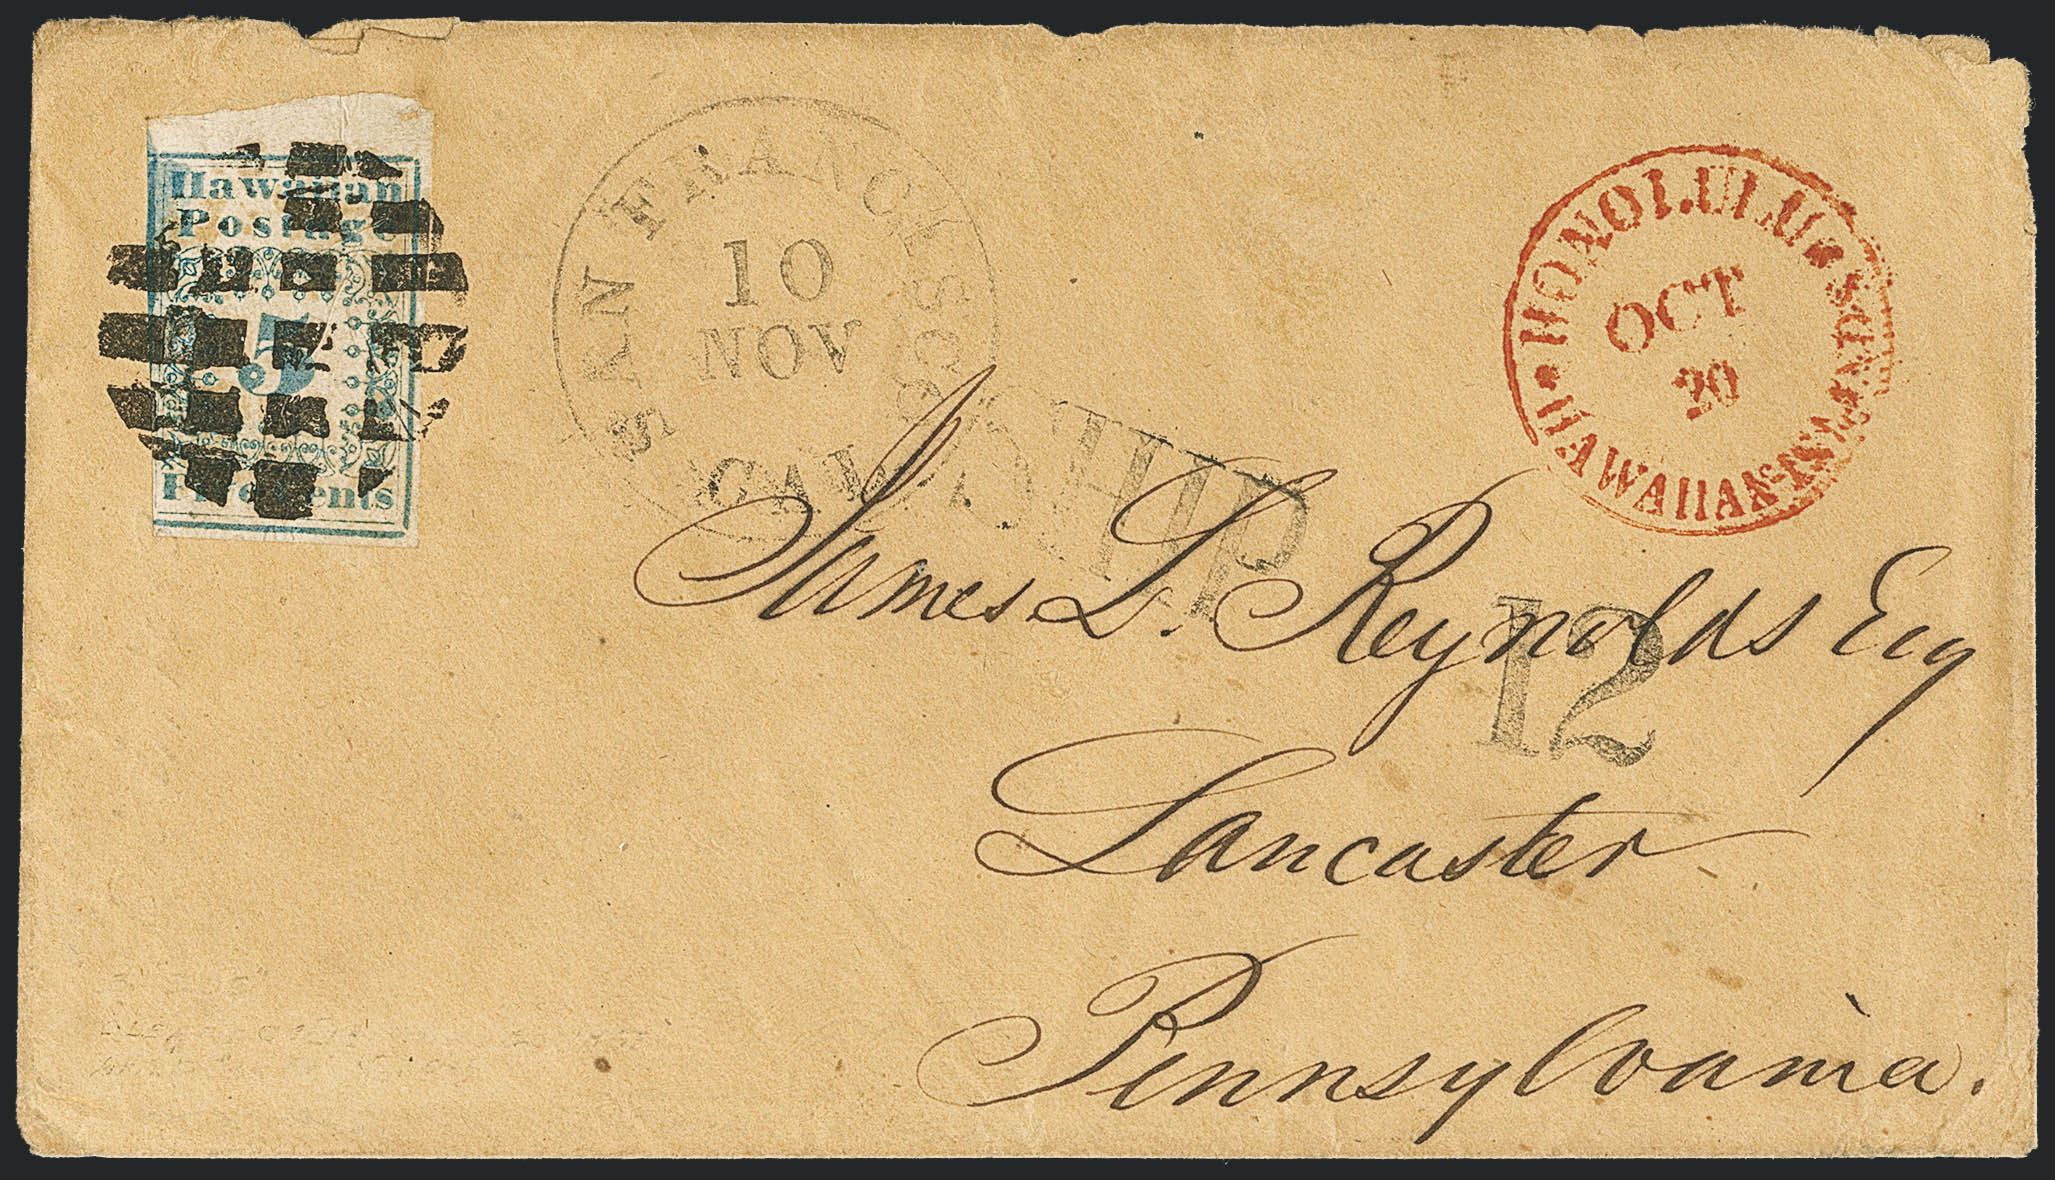 Hawaiian
Postage
5
Five Cents
SAN FRANCISCO
10
NOV
CAL.
SHIP
HONOLULU
OCT
20
HAWAIIAN-ISLANDS
12
James L. Reynolds Esq
Lancaster
Pennsylvania.